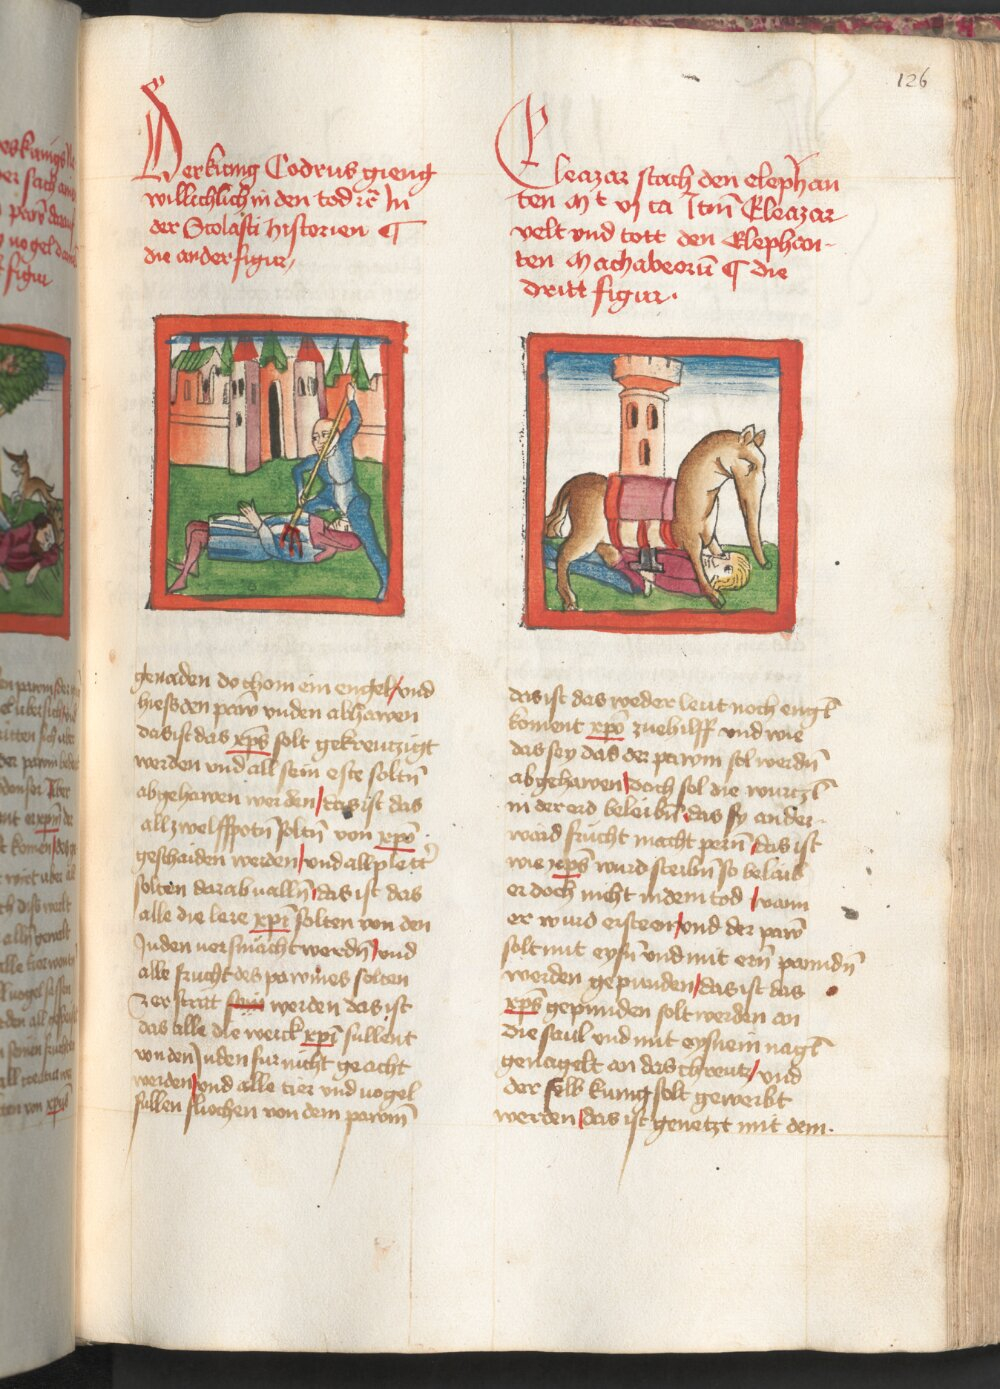 126
Der kunig Codrus gieng
willichlich in den tod rc̄ In
der Scolasti historien ¶
die ander figur
Eleazar stach den elephan
ten M t vj ca Itm̄ Eleazar
velt vnd tott den Elephan-
ten Machabeorū ¶ die
dritt figur.
genaden do chom ein engel / vnd
hiess den pawm vnden abhawen
das ist das xp̄s solt gekreutzigt
werden vnd all sein este soltn̄
abgehawen werden / das ist das
all zwelffpotn̄ soltn̄ von xp̄o
geschaiden werden / vnd all pletter
solten darab valln̄ / das ist das
alle die lere xp̄i solten von den
Juden versmächt werdn̄ / vnd
alle frucht des pawmes solten
zerstratt sein werden das ist
das alle die werck xp̄i sullent
von den Juden fur nicht geacht
werden / vnd alle tier vnd vogel
sullen fliechen von dem pawm̄
das ist das weder leut noch engl
koment xp̄o zuehilff vnd wie
das sey das der pawm sol werdn̄
abgehawen / doch sol die wurtzl
in der erd beleibn̄ / das sy ander-
ward frucht macht pern̄ / das ist
wie xp̄s wurd sterbn̄ so beleib
er doch nicht in dem tod / wann
er wurd ersteen / vnd der pawm
solt mit eysn̄ vnd mit ern̄ panndn̄
werden gepunden / das ist das
xp̄s gepunden solt werden an
die saul vnd mit eysnein nagl
genagelt an das chreutz / vnd
der selb kunig solt gewerbt
werden / das ist genetzt mit dem.